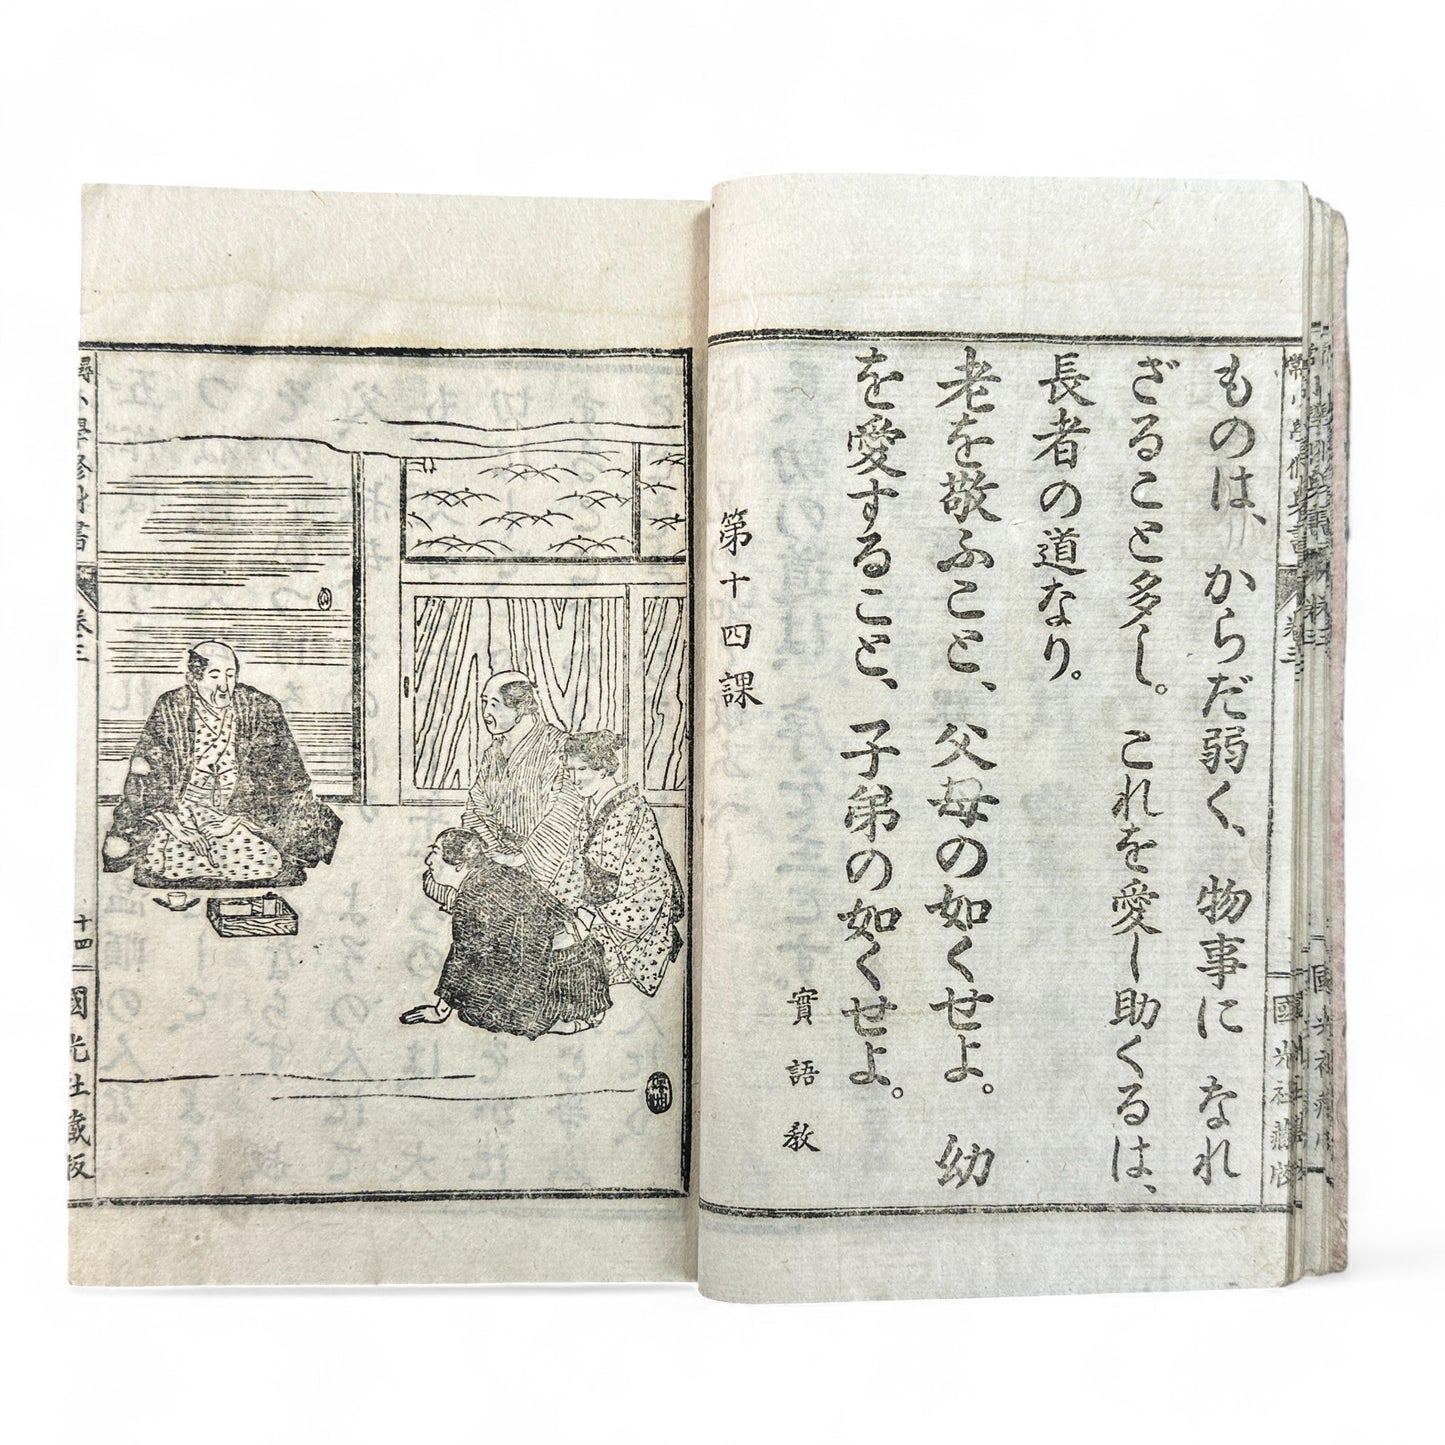 ものは、からだ弱く、物事になれ
ざること多し。これを愛し助くるは、
長者の道なり。
老を敬ふこと、父母の如くせよ。幼
を愛すること、子弟の如くせよ。
實語教
第十四課
尋常小學修身書
卷三
十四
國光社藏版